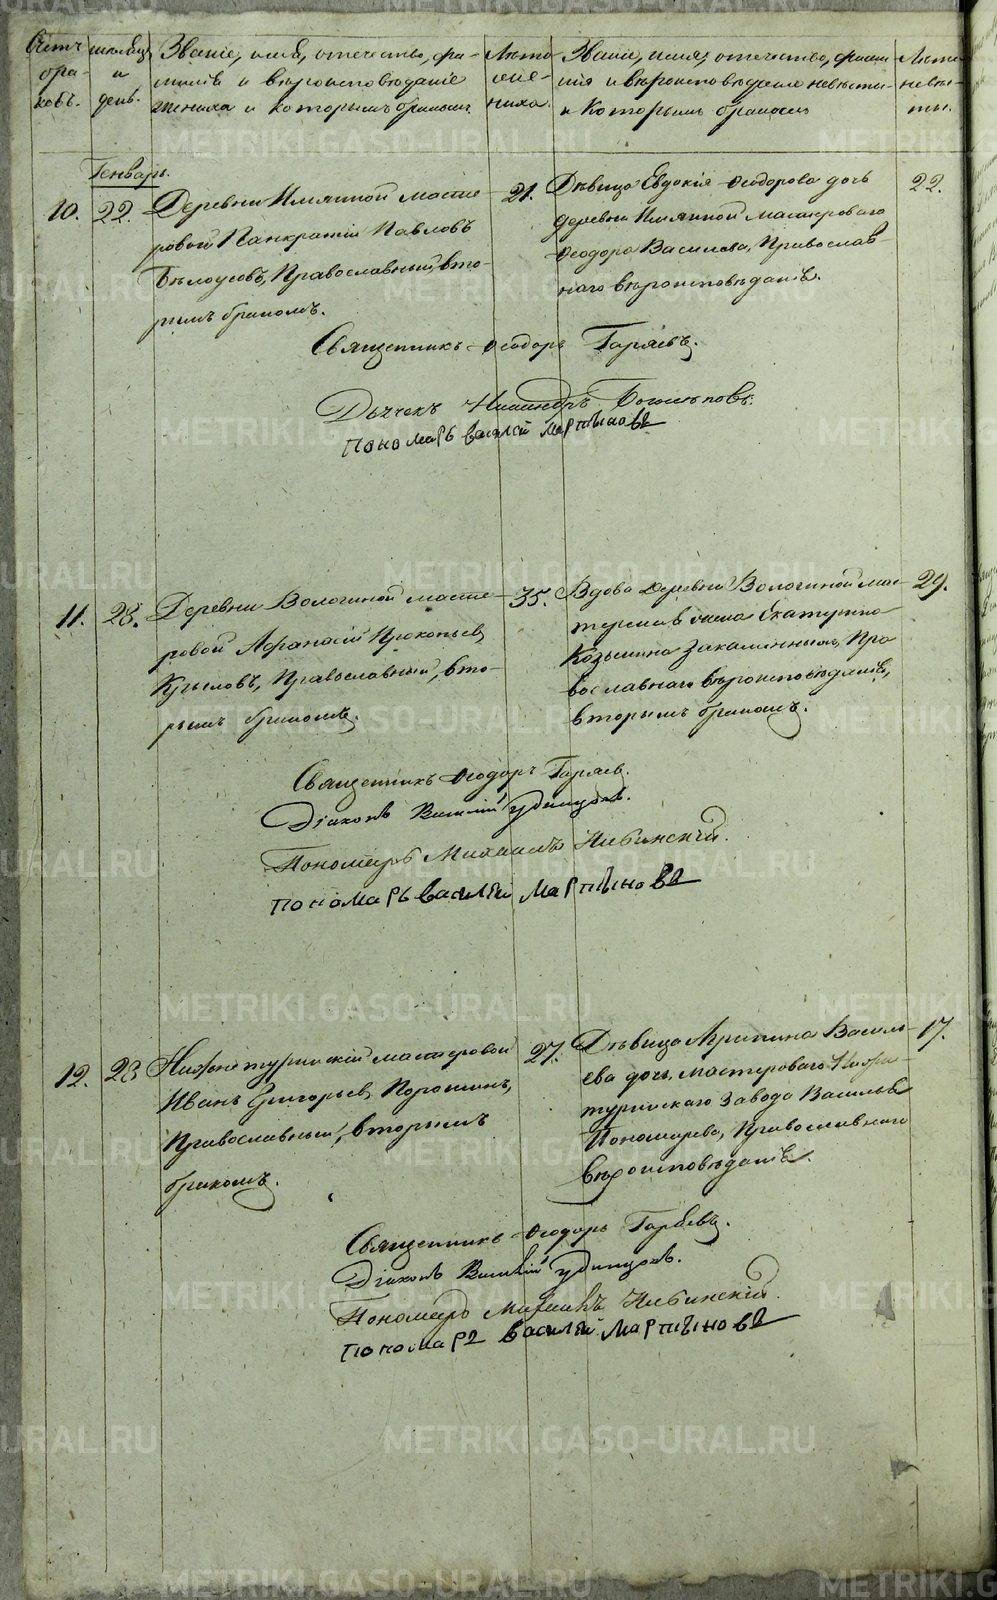 Счетъ бра- ковъ.
мѣсяцъ и день.
Званіе, имя, отечество, фа-
милія и вѣроисповѣданіе
жениха и которымъ бракомъ.
Лѣта же- ниха.
Званіе, имя, отечество, фами-
лія и вѣроисповѣданіе невѣсты
и которымъ бракомъ
Лѣта невѣс- ты.
Генварь.
10. 22. Деревни Имянной масте-
ровой Панкратій Павловъ
Бѣлоусовъ, Православный, вто-
рымъ бракомъ.
21.
Дѣвица Евдокія Ѳеодорова дочь
деревни Имянной мастероваго
Ѳеодора Василева, Православ-
наго вѣроисповѣданія.
22.
Священникъ Ѳеодоръ Гаряевъ.
Дьячекъ Никандръ
пономарь василей мартыновъ
11. 28. Деревни Вологиной масте-
ровой Афанасій Прокопьевъ
Крыловъ, Православный, вто-
рымъ бракомъ.
35.
Вдова деревни Вологиной мас-
жена Екатерина
Козьмина Православнаго вѣроисповѣданія,
вторымъ бракомъ.
29.
Священникъ Ѳеодоръ Гаряевъ.
Діаконъ Василій Удинцовъ.
Пономарь Михаилъ Нивинскій.
пономарь василей мартыновъ
12. 28 Нижнетуринскій мастеровой
Иванъ Григорьевъ Порошинъ,
Православный, вторымъ
бракомъ.
27.
Дѣвица Агрипина Василь-
ева дочь, мастероваго Нижне-
туринскаго завода Василья
Пономарева, Православнаго
вѣроисповѣданія.
17.
Священникъ Ѳеодоръ Гаряевъ.
Діаконъ Василій Удинцовъ.
Пономарь Михаилъ Нивинскій.
пономарь василей мартыновъ
METRIKI.GASO-URAL.RU